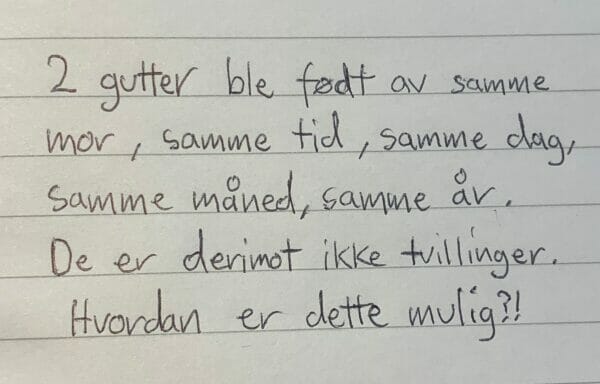 2 gutter ble født av samme
mor, samme tid, samme dag,
samme måned, samme år.
De er derimot ikke tvillinger.
Hvordan er dette mulig?!